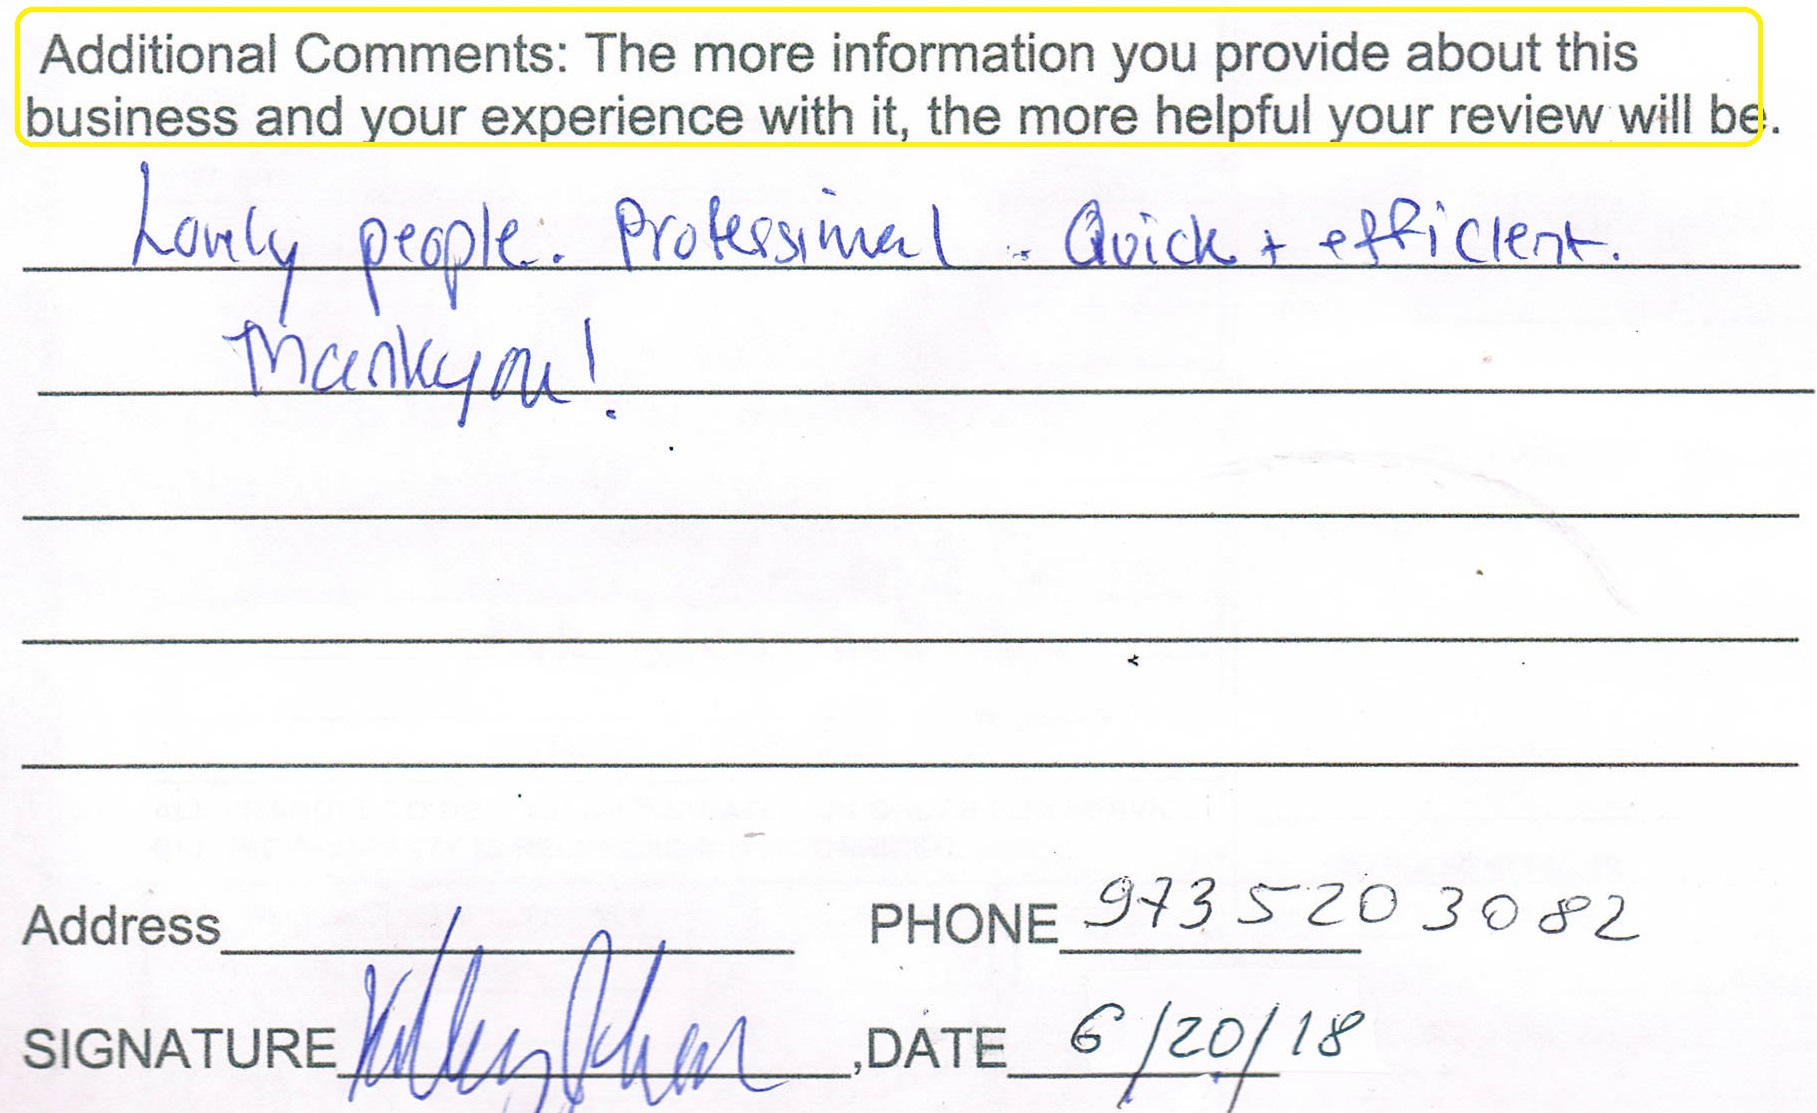 Additional Comments: The more information you provide about this
business and your experience with it, the more helpful your review will be.
Lovely people. Professional. Quick + efficient.
Thankyou!
Address PHONE 973 520 3082
SIGNATURE ,DATE 6/20/18